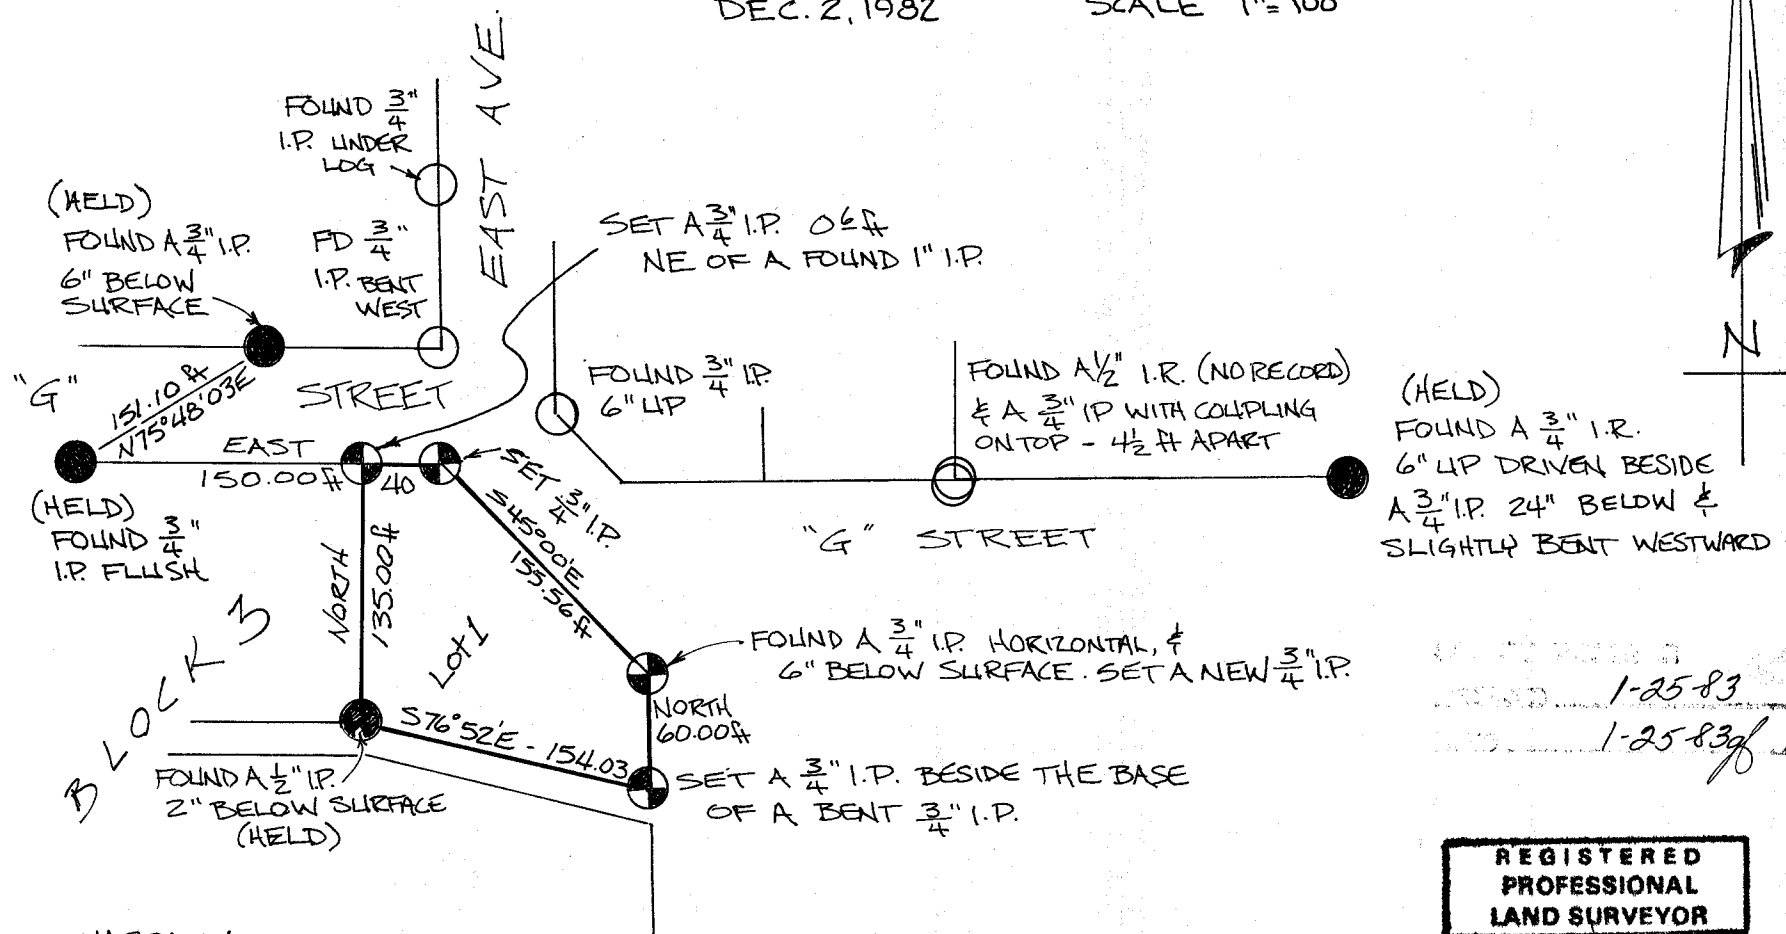 DEC. 2, 1982 SCALE 1"= 100'
EAST AVE.
FOUND 3/4"
I.P. UNDER
LOG
(HELD)
FOUND A 3/4" I.P.
6" BELOW
SURFACE
FD 3/4"
I.P. BENT
WEST
SET A 3/4" I.P. 0.6 ft
NE OF A FOUND 1" I.P.
"G" STREET
151.10 ft
N75°48'03E
FOUND 3/4" I.P.
6" UP
FOUND A 1/2" I.R. (NO RECORD)
& A 3/4" IP WITH COUPLING
ON TOP - 4 1/2 ft APART
(HELD)
FOUND A 3/4" I.R.
6" UP DRIVEN BESIDE
A 3/4" I.P. 24" BELOW &
SLIGHTLY BENT WESTWARD
EAST
150.00 ft
40
SET 3/4" I.P.
(HELD)
FOUND 3/4"
I.P. FLUSH
"G" STREET
NORTH
135.00 ft
S45°00'E
155.56 ft
LOT 1
BLOCK 3
FOUND A 3/4" I.P. HORIZONTAL, &
6" BELOW SURFACE. SET A NEW 3/4" I.P.
NORTH
60.00 ft
S76°52'E - 154.03
FOUND A 1/2" I.P.
2" BELOW SURFACE
(HELD)
SET A 3/4" I.P. BESIDE THE BASE
OF A BENT 3/4" I.P.
N
1-25-83
1-25-83
REGISTERED
PROFESSIONAL
LAND SURVEYOR